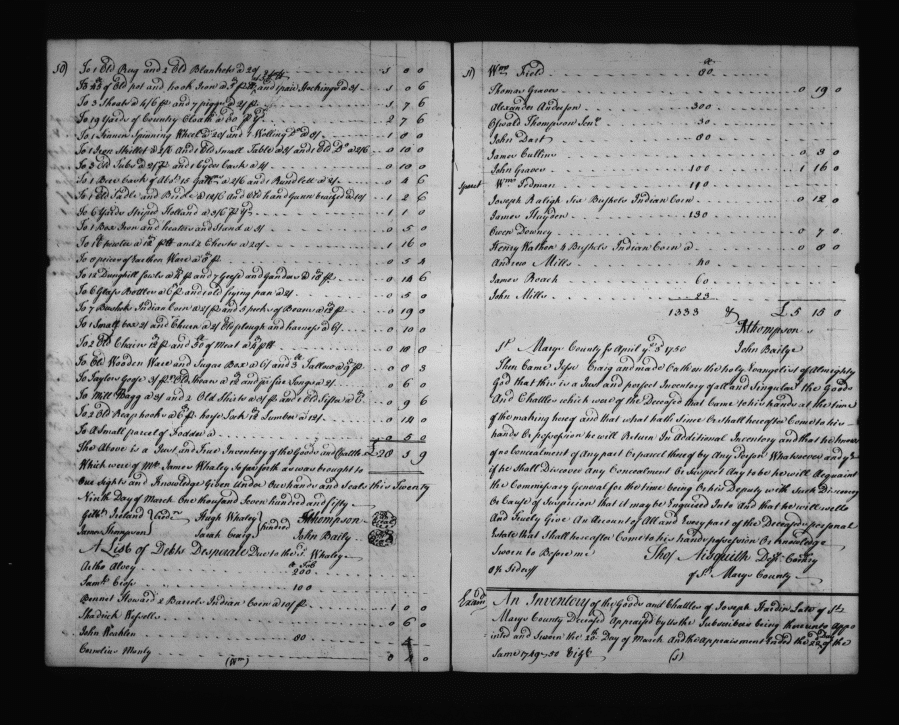 50)
To 1 Old Rug and 2 Old Blankets a 20/ 1 0 0
To 23 lb of Old pot and hook Iron a and 1 pair Stockings a 3/ 1 0 6
To 3 Shoats a 4/6 p and 7 piggs a 2/ p 1 7 6
To 19 Yards of Country Cloath a 30 p yd 2 7 6
To 1 Linnen Spinning Wheel a 20/ and 1 Wolling Do a 8/ 1 8 0
To 1 Iron Skillet a 2/6 And 1 Old Small Table a 5/ and 1 Old Do a 2/6 0 10 0
To 3 Old Tubs a 2/ p and 1 Cyder Cask a 4/ 0 10 0
To 1 Beer Cask of Abot 15 Gallons a 2/6 and 1 Rundlett a 2/ 0 4 6
To 1 Old Sadle and Bridle a 12/6 and Old hand Gunn braized a 10/ 1 2 6
To 6 Yards Striped Holland a 3/6 p yd 1 1 0
To 1 Box Iron and heaters and Stand a 5/ 0 5 0
To pewter a 12 p lb and 2 Chests a 20/ 1 16 0
To 8 pices of Earthen Ware a 8 p 0 5 4
To 12 Dunghill fowls a p and 7 Geese and Ganders a p 0 14 6
To 6 Glass Bottles a 6 p and 1 old frying pan a 2/ 0 5 0
To 7 Bushels Indian Corn a 2/ p and 3 pecks of Beans a p 0 19 0
To 1 Small box 2/ and Churn a 2/ Old plough and harness a 6/ 0 10 0
To 2 Old Chairs a p and 50 lb of Meat a 4 p lb 0 18 8
To Old Wooden Ware and Sugar Box a 6/ and 3 lb Tallow a 9 p 0 8 3
To Taylors Goose 3/ pr Old Shears a and pr fire Tongs a 2/ 0 6 0
To Mill Bagg a 3/ and 2 Old Shirts a 3/ p and 1 old Sifter a 6 0 9 6
To 2 Old Reaphooks a 6 p horse Lock Lumber a 12/ 0 14 0
To A Small parcel of Fodder a 0 5 0
The Above is a Just and True Inventory of the Goods and Chattles £ 20 3 9
Which were of Mr James Whaley so far forth as was brought to
Our Sights and Knowledge Given Under Our hands and Seals this Twenty
Ninth Day of March One thousand Seven hundred and fifty
Gilbt Ireland James Thompson } Credrs Hugh Whaley Sarah Craig } kindred Jt Thompson John Baily
A List of Debts Desperate Due to the sd Whaley
Artho Alvey 200
Saml Cross 100
Bennet Howard 2 Barrels Indian Corn a 10/ p 1 0 0
Shadrick Vessells 0 6 0
John 80
Cornelius Manly 0 4 0
(Wm)
51)
Wm Field 80
Thomas Graves 0 19 0
Alexander Anderson 300
Oswald Thompson Senr 30
John Dart 80
James Cullins 0 3 0
John Graves 100 1 16 0
Wm Tedman 110
Joseph Raligh Six Bushels Indian Corn 0 12 0
James Hayden 130
Owen Downey 0 7 0
Henry Wathen 4 Bushels Indian Corn a 0 8 0
Andrew Mills 40
James Roach 60
John Mills 23
1333 & £ 5 15 0
Jt Thompson
John Bailye
St Marys County ss April 1750
Then Came Jesse Craig and made Oath on the holy Evangelist of Almighty
God that this is a Just and perfect Inventory of all and Singular the Goods
And Chattles which were of the Deceased that Came to his hands at the time
of the making hereof and that what hath Since Or Shall hereafter Come to his
hands Or possession he will Return In Additional Inventory and that he knows
of no Concealment of Any part Or parcel thereof by Any Person Whatsoever and yt
if he Shall Discover Any Concealment Or Suspect Any to be he will Acquaint
the Commissary General for the time being Or his Deputy with Such Discovery
Or Cause of Suspicion that it may be Enquired Into And that he will well
And truely Give An Account of All and Every part of the Deceaseds personal
Estate that Shall hereafter Come to his hands possession Or knowledge
Sworn to Before me Thos Aisquith Depy Comry
of St Marys County
Examd An Inventory of the Goods and Chattles of Joseph Hardin Late of St
Marys County Deceased Appraised by Us the Subscribers being thereunto Appo
inted and Sworn the 20th Day of March And the Appraisment Ended the of the
Same 1749-50 Vizt
(1)